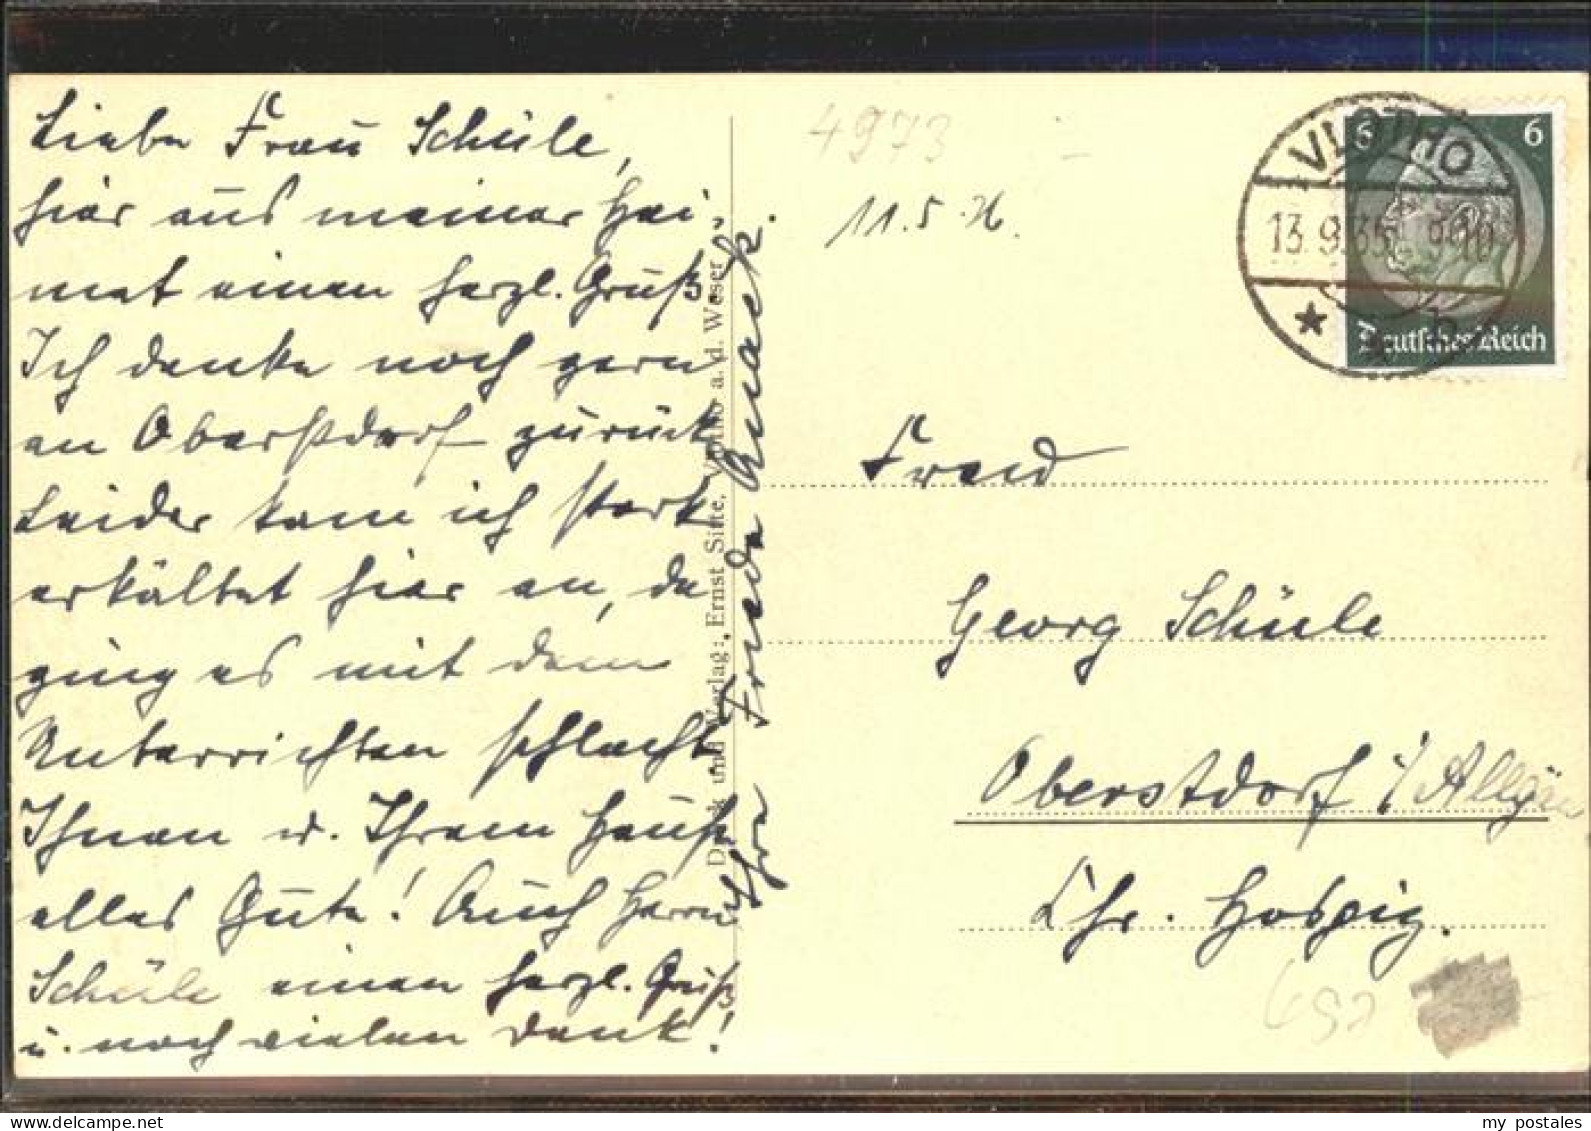 Liebe Frau Schüle,
hier aus meiner Hei-
mat einen herzl. Gruß.
Ich denke noch gern
an Oberstdorf zurück
Leider kam ich stark
erkältet hier an, da
ging es mit dem
Unterrichten schlecht
Ihnen u. Ihrem Hause
alles Gute! Auch Herrn
Schüle einen herzl. Gruß
u. noch vielen Dank!
Ihre Frieda
Druck und Verlag: Ernst Sitte, Vlotho a. d. Weser
4973
11.5.36.
VLOTHO
13.9.35. 9-10
6 6
Deutsches Reich
Georg Schüle
Oberstdorf i/ Allgäu
Chr. Hospiz.
my postales
www.delcampe.net